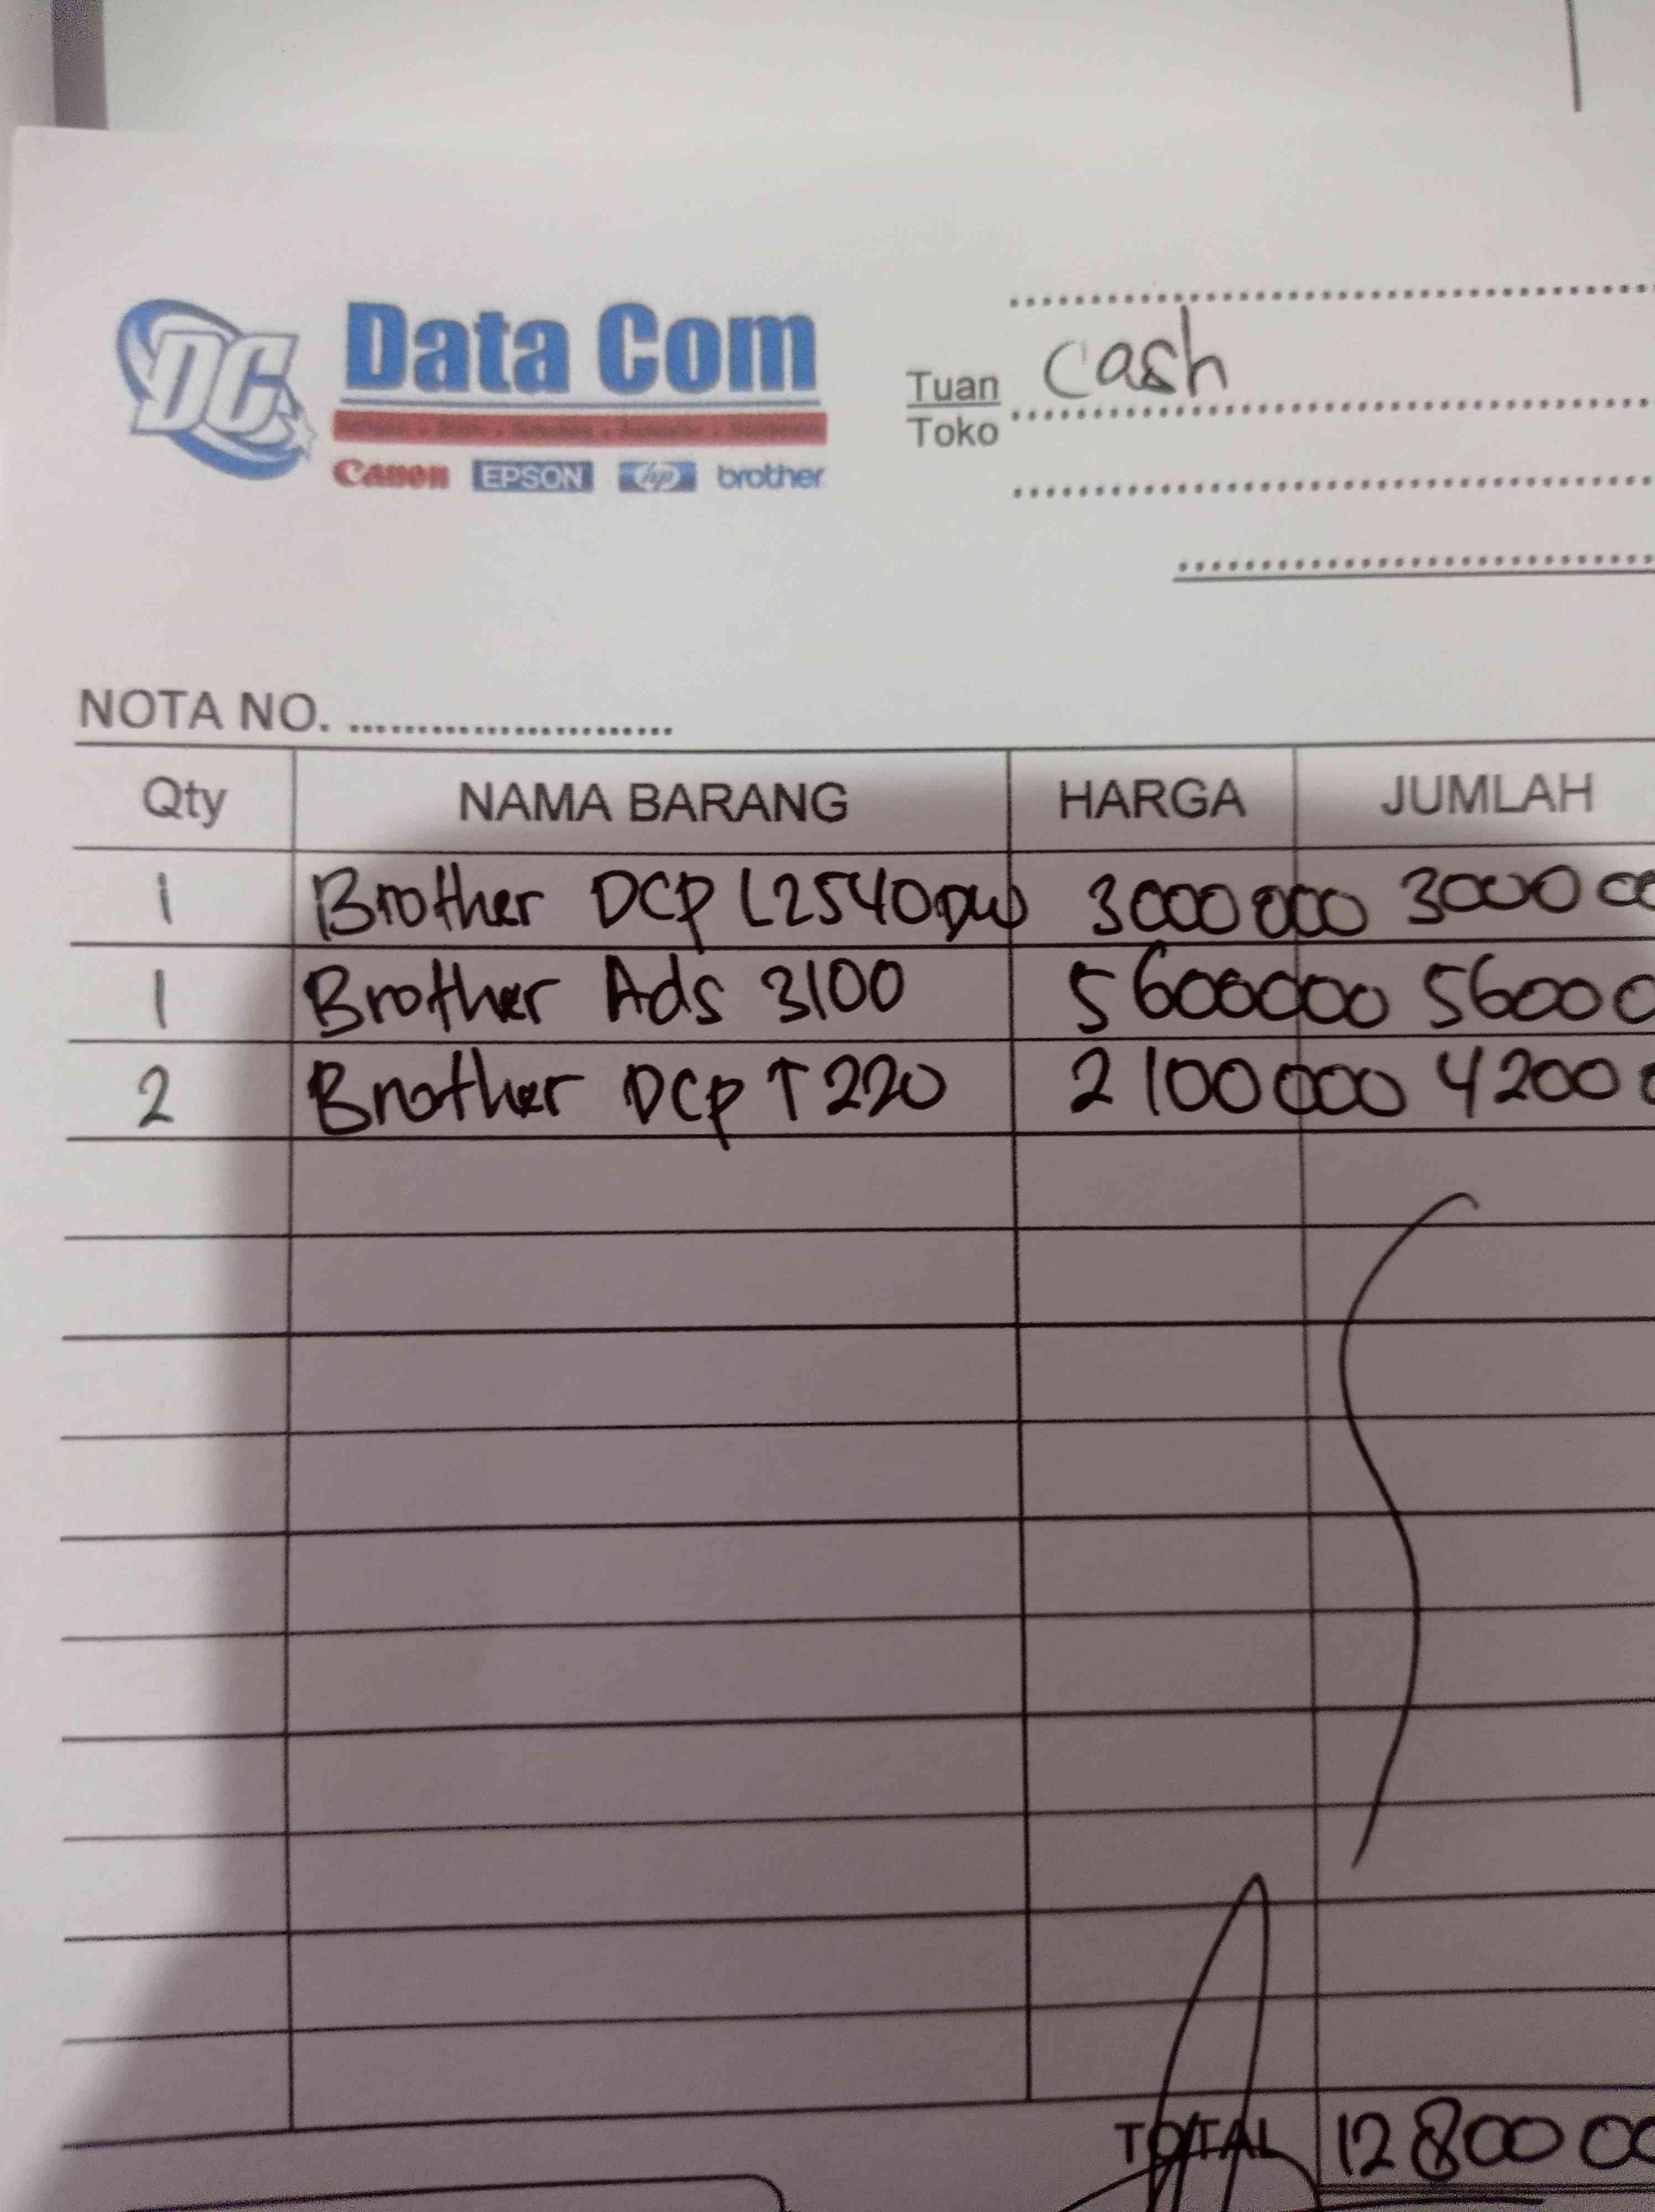 DC
Data Com
Canon EPSON hp brother
Tuan Cash
Toko
NOTA NO.
Qty NAMA BARANG HARGA JUMLAH
1 Brother DCP L2540DW 3000000 300000
1 Brother Ads 3100 5600000 56000
2 Brother DCP T220 2100000 42000
TOTAL 1280000